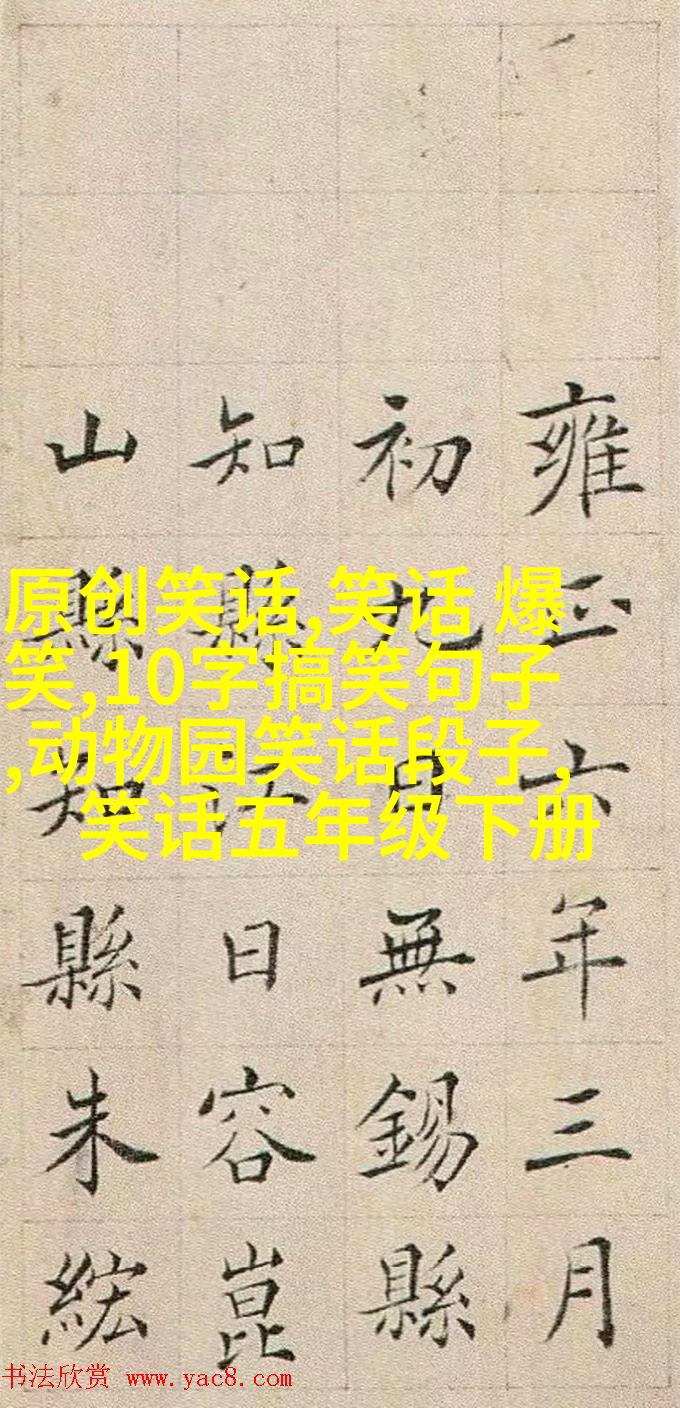 雍正六年三月
初九日無錫縣
知縣江日容崑
山縣知縣朱紘
原创笑话,笑话 爆
笑,10字搞笑句子
,动物园笑话段子,
笑话五年级下册
书法欣赏 www.yac8.com